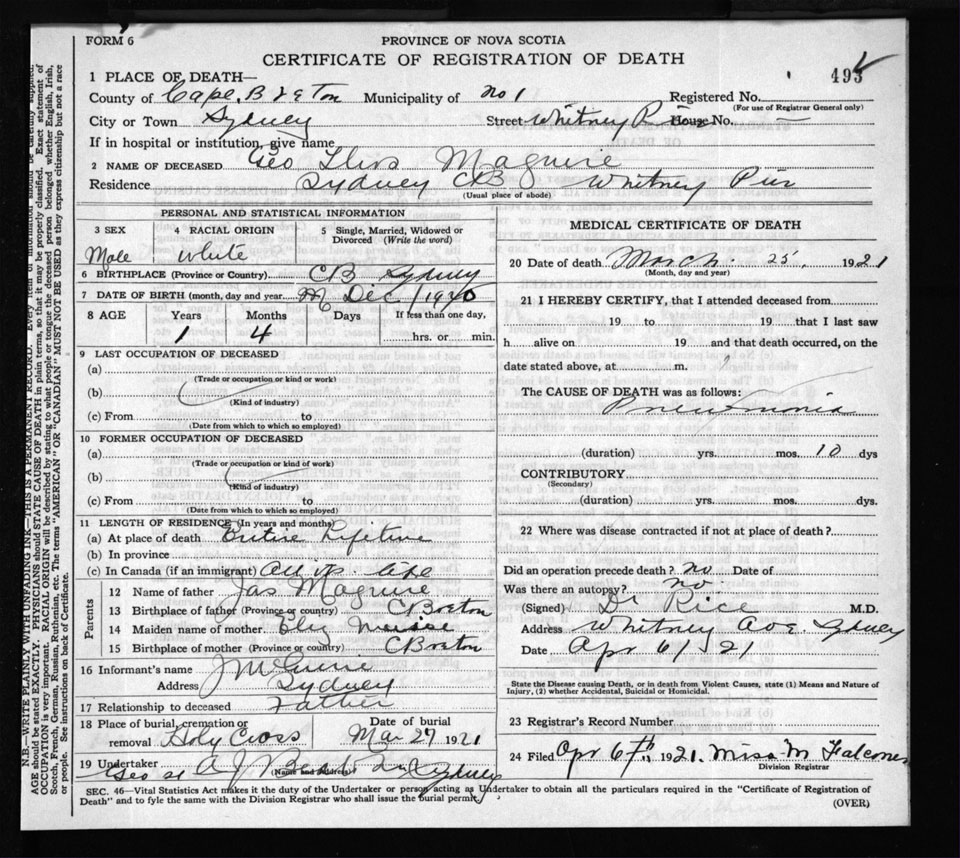 FORM 6
PROVINCE OF NOVA SCOTIA
CERTIFICATE OF REGISTRATION OF DEATH
493
1 PLACE OF DEATH—
County of Cape Breton Municipality of No 1 Registered No.
(For use of Registrar General only)
City or Town Sydney Street Whitney Pier House No. —
If in hospital or institution, give name
2 NAME OF DECEASED Geo Maguire
Residence Sydney CB Whitney Pier
(Usual place of abode)
PERSONAL AND STATISTICAL INFORMATION
3 SEX 4 RACIAL ORIGIN 5 Single, Married, Widowed or Divorced (Write the word)
Male White
6 BIRTHPLACE (Province or Country) CB Sydney
7 DATE OF BIRTH (month, day and year) M Dec / 1920
8 AGE Years Months Days If less than one day,
1 4 hrs. or min.
9 LAST OCCUPATION OF DECEASED
(a)
(Trade or occupation or kind or work)
(b)
(Kind of industry)
(c) From to
(Date from which to which so employed)
10 FORMER OCCUPATION OF DECEASED
(a)
(Trade or occupation or kind of work)
(b)
(Kind of industry)
(c) From to
(Date from which to which so employed)
11 LENGTH OF RESIDENCE (In years and months)
(a) At place of death Entire Lifetime
(b) In province
(c) In Canada (if an immigrant) All its life
Parents
12 Name of father Jas Maguire
13 Birthplace of father (Province or country) C Breton
14 Maiden name of mother Eliz
15 Birthplace of mother (Province or country) C Breton
16 Informant's name J McGuire
Address Sydney
17 Relationship to deceased Father
18 Place of burial, cremation or removal Holy Cross
Date of burial Mar 27 1921
19 Undertaker A J Beaton Sydney
(Name and Address)
MEDICAL CERTIFICATE OF DEATH
20 Date of death March 25, 1921
(Month, day and year)
21 I HEREBY CERTIFY, that I attended deceased from
19 to 19 that I last saw
h alive on 19 and that death occurred, on the
date stated above, at m.
The CAUSE OF DEATH was as follows:
Pneumonia
(duration) yrs. mos. 10 dys
CONTRIBUTORY
(Secondary)
(duration) yrs. mos. dys.
22 Where was disease contracted if not at place of death?
Did an operation precede death? No Date of
Was there an autopsy? No
(Signed) Dr Rice M.D.
Address Whitney Ave Sydney
Date Apr 6/21
State the Disease causing Death, or in death from Violent Causes, state (1) Means and Nature of
Injury, (2) whether Accidental, Suicidal or Homicidal.
23 Registrar's Record Number
24 Filed Apr 6th 1921. Miss M Falconer
Division Registrar
SEC. 46—Vital Statistics Act makes it the duty of the Undertaker or person acting as Undertaker to obtain all the particulars required in the "Certificate of Registration of
Death" and to fyle the same with the Division Registrar who shall issue the burial permit.
(OVER)
N.B.—WRITE PLAINLY WITH UNFADING INK—THIS IS A PERMANENT RECORD. Every item of information should be carefully supplied.
AGE should be stated EXACTLY. PHYSICIANS should STATE CAUSE OF DEATH in plain terms, so that it may be properly classified. Exact statement of
OCCUPATION is very important. RACIAL ORIGIN will be described by stating to what people or tongue the deceased person belonged whether English, Irish,
Scotch, French, German, Russian, Ruthenian, etc. The terms "AMERICAN" OR "CANADIAN" MUST NOT BE USED as they express citizenship but not a race
or people. See instructions on back of Certificate.